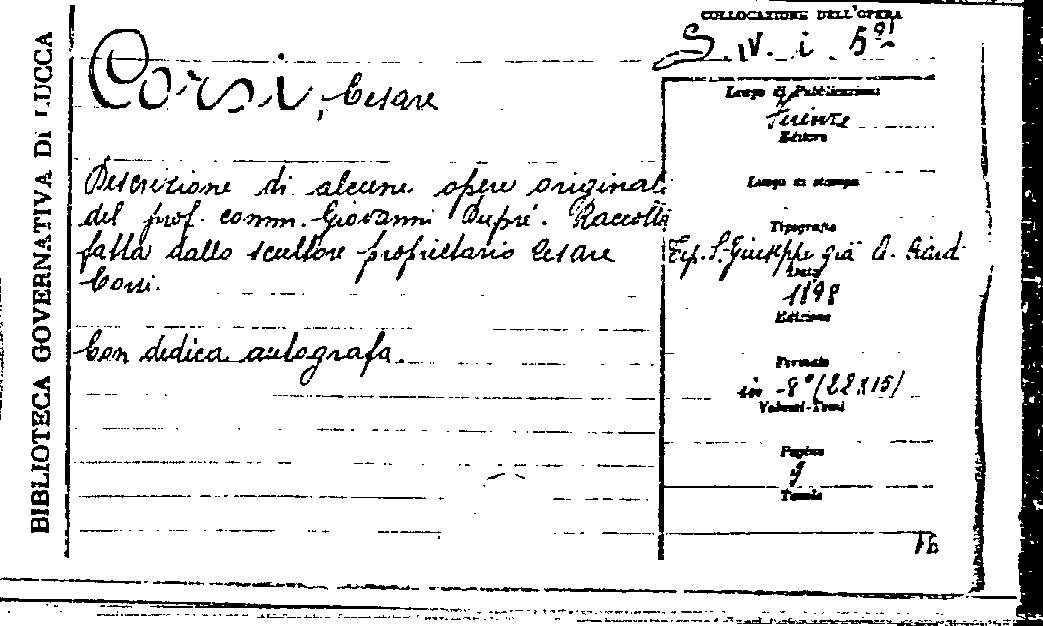 BIBLIOTECA GOVERNATIVA DI LUCCA
COLLOCAZIONE DELL'OPERA
S. IV. i. 5
Corsi, Cesare
Descrizione di alcune opere originali
del prof. comm. Giovanni Dupré. Raccolta
fatta dallo scultore proprietario Cesare
Corsi.
Con dedica autografa.
Luogo di Pubblicazione
Firenze
Editore
Luogo di stampa
Tipografia
Tip. S. Giuseppe già A.
Data
1898
Edizione
Formato
in -8° (22x15)
Volumi-Tomi
Pagine
9
Tavole